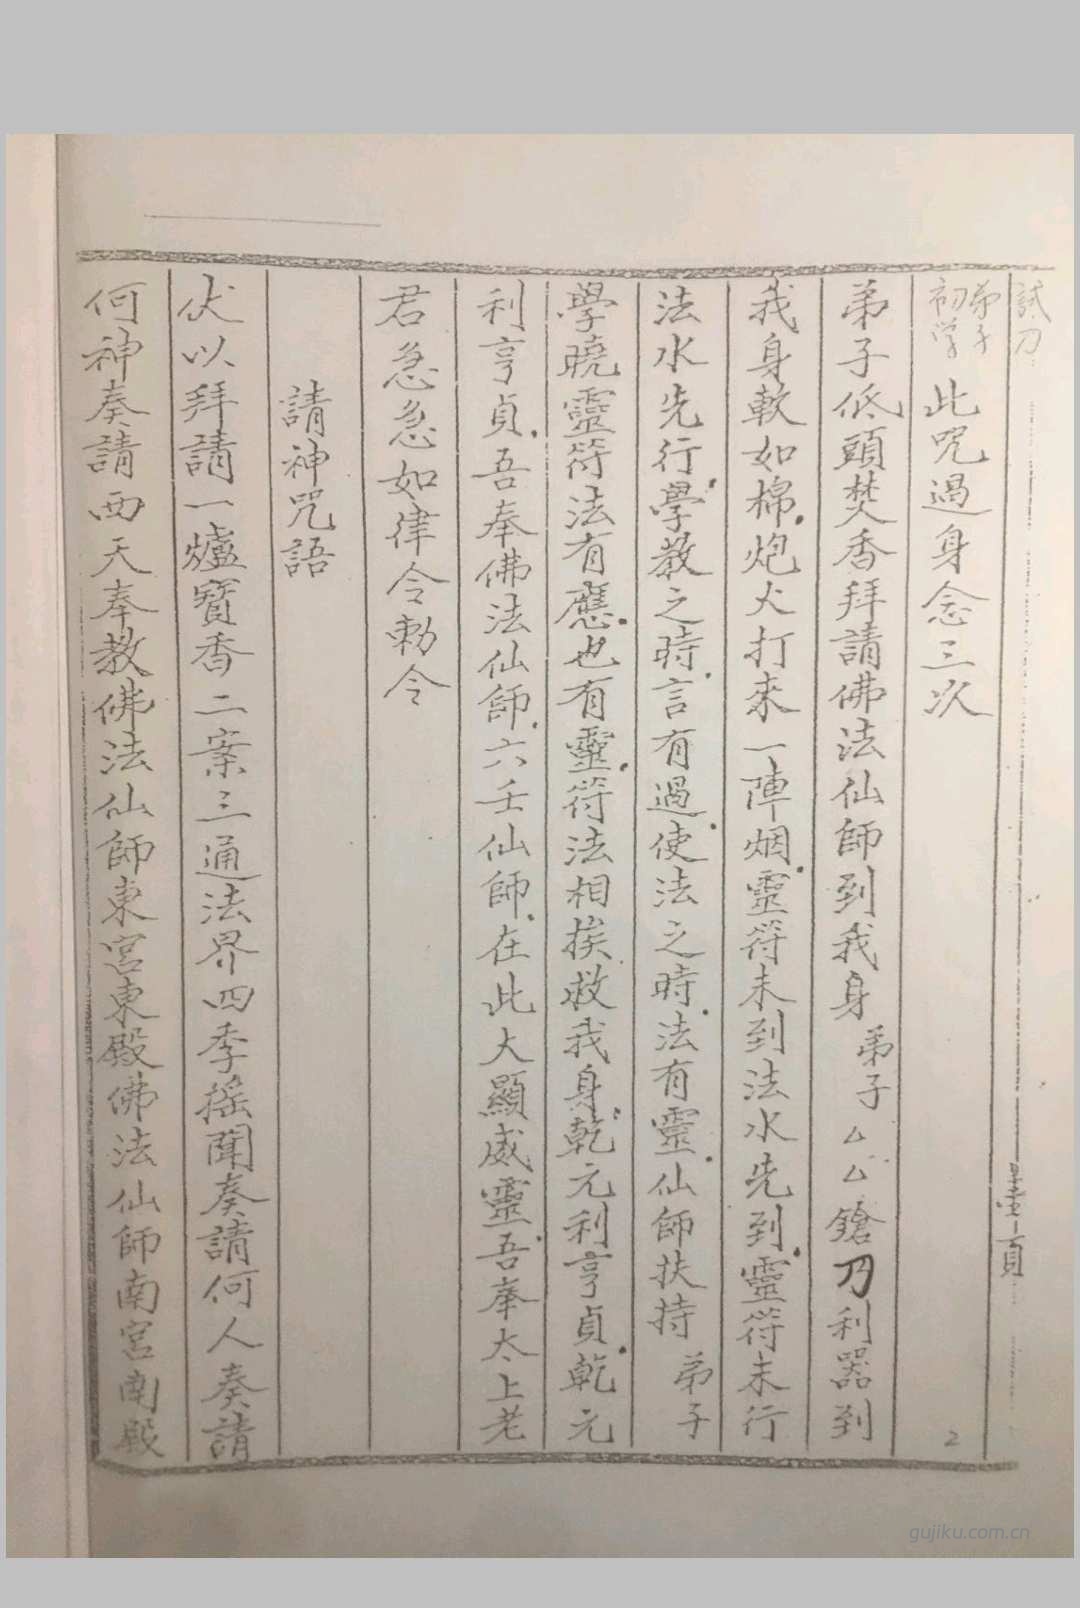 試刀
弟子
初学
此咒過身念三次
弟子低頭焚香拜請佛法仙師到我身弟子厶厶鎗乃利器到
我身軟如棉炮火打來一陣烟靈符未到法水先到靈符未行
法水先行學教之時言有過使法之時法有靈仙師扶持弟子
學曉靈符法有應也有靈符法相挨救我身乾元利亨貞乾元
利亨貞吾奉佛法仙師六壬仙師在此大顯威靈吾奉太上老
君急急如律令勅令
請神咒語
伏以拜請一爐寶香二案三通法界四季搖聞奏請何人奏請
何神奏請西天奉教佛法仙師東宮東殿佛法仙師南宮南殿
壹頁
2
gujiku.com.cn